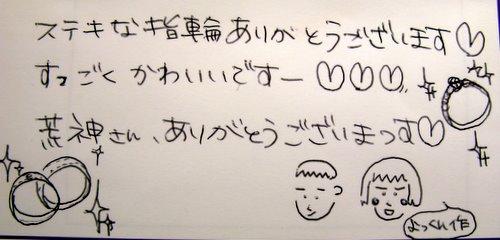 ステキな指輪ありがとうございます♡
すっごくかわいいですー♡♡♡
荒神さん、ありがとうございまっす♡
よっくん作